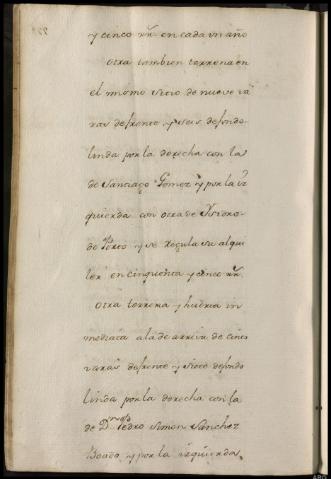 y cinco rr.ˢ en cada un año
otra tambien terrena en
el mismo sitio de nueve va
ras de frente y seis de fondo
linda por la derecha con la
de Santiago Gomez y por la iz
quierda con otra de Ysidro
de Porto y se regula su alqui
ler en cinquenta y cinco rr.ˢ
otra terrena y huerta in
mediata a la de arriva de cinco
varas de frente y siete de fondo
linda por la derecha con la
de D.ⁿ Pedro Simon Sanchez
Boado y por la izquierda